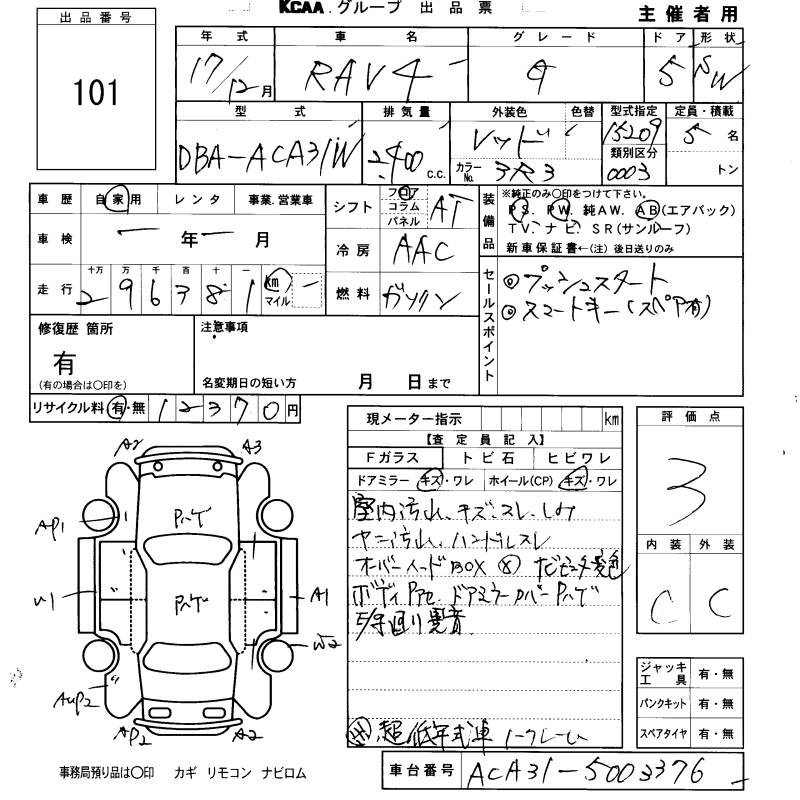 KCAA グループ 出品票
主催者用
出品番号
101
年式 車名 グレード ドア 形状
17/12月 RAV4 G 5 SW
型式 排気量 外装色 色替 型式指定 定員・積載
DBA-ACA31W 2,400 c.c. レッド 15209 5名
カラーNo. 3R3 類別区分 0003 トン
車歴 自家用 レンタ 事業.営業車
車検 ー年ー月
走行 十万 万 千 百 十 一
2 9 6 3 8 1 km マイル
シフト フロア コラム パネル AT
冷房 AAC
燃料 ガソリン
装備品
※純正のみ〇印をつけて下さい。
PS. PW. 純AW. AB(エアバック)
TV. ナビ. SR(サンルーフ)
新車保証書←(注) 後日送りのみ
セールスポイント
◎プッシュスタート
◎スマートキー(スペア有)
修復歴 箇所
有
(有の場合は〇印を)
注意事項
名変期日の短い方 月 日まで
リサイクル料 有・無 12370円
A2 A3
AP1 Pハゲ
U1 Pハゲ A1
W2
AUP2
AP2 A2
現メーター指示 km
【査定員記入】
Fガラス トビ石 ヒビワレ
ドアミラー キズ・ワレ ホイール(CP) キズ・ワレ
室内汚れ、キズ、スレ、シミ
ヤニ汚れ、ハンドルスレ
オーバーヘッドBOX
ボディPアセ ドアミラーカバーPハゲ
異音
超低年式車 ノークレーム
評価点
3
内装 外装
C C
ジャッキ工具 有・無
パンクキット 有・無
スペアタイヤ 有・無
事務局預り品は〇印 カギ リモコン ナビロム
車台番号 ACA31-5003376